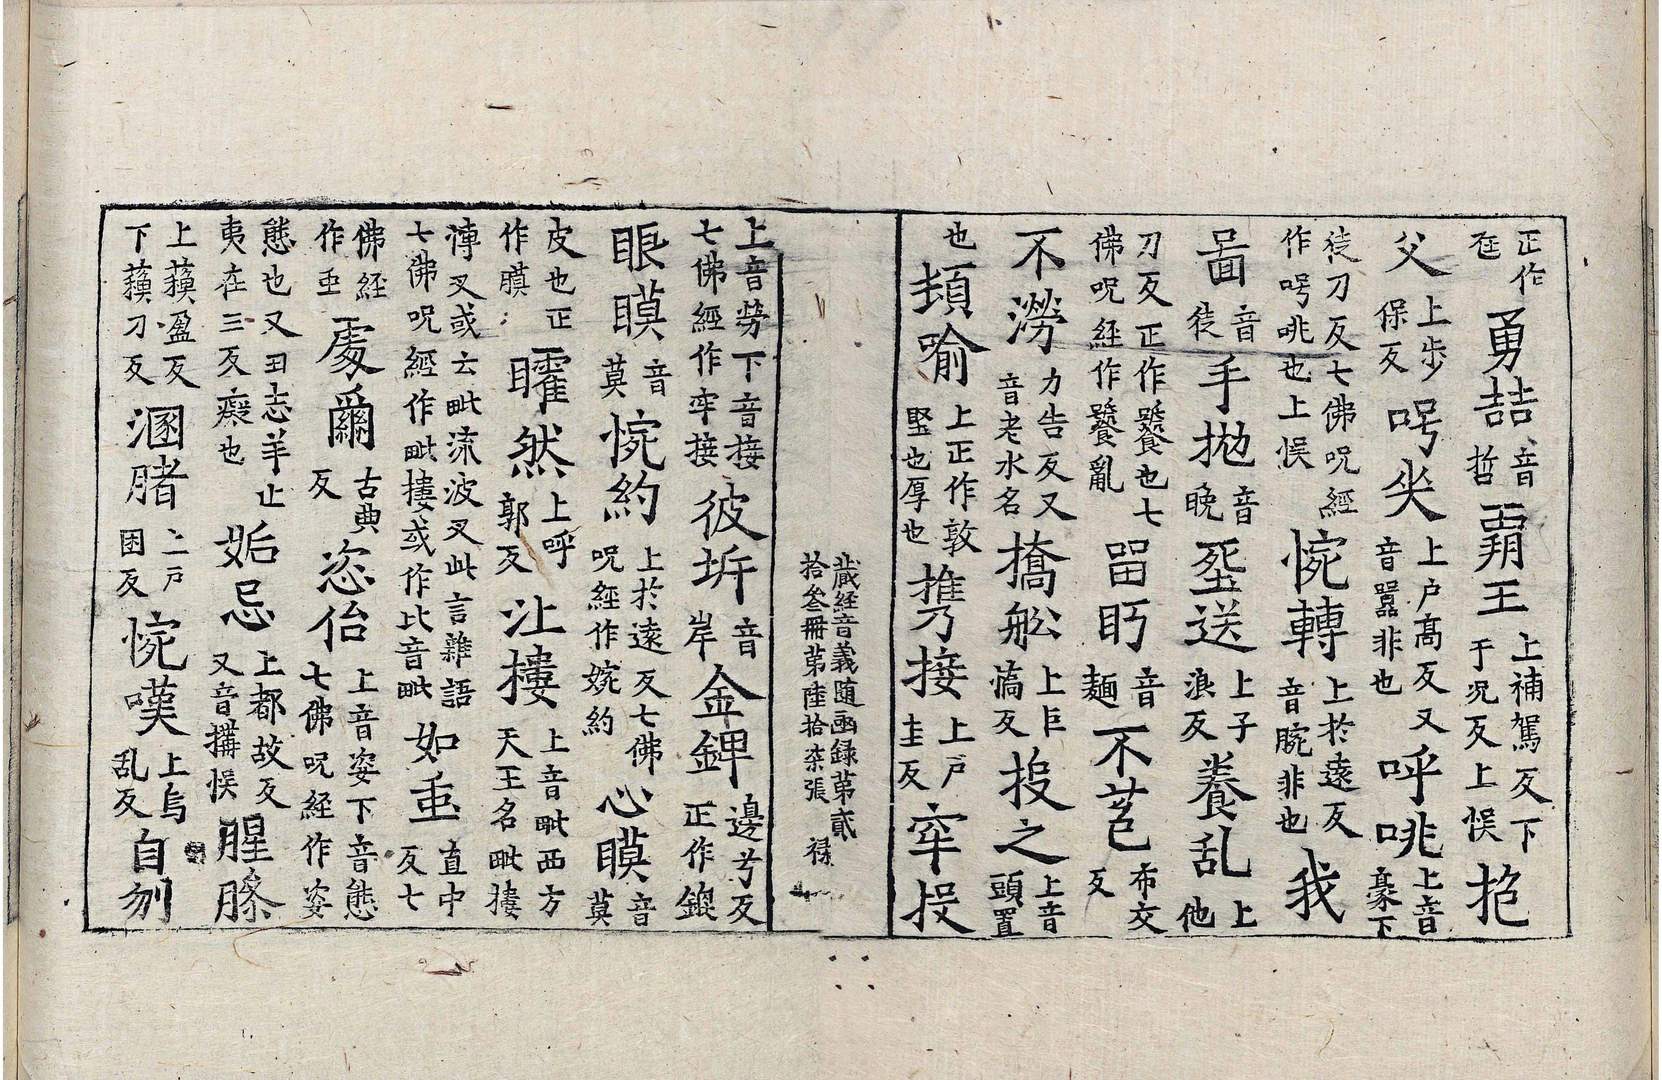 正作勇喆音哲覇王上補駕反下于况反上悮抱
父上步保反呺上戶高反又音嚻非也呼咷上音豪下
徒刀反七佛呪經作呺咷也上悮惋轉上扵遠反音腕非也我
啚音徒手拋音晚埿送上子浪反養乱上他
刀反正作饕也七佛呪經作饕亂畱眄音麺不苞布交反
不澇力告反又音老水名撟舩上巨憍反投之上音頭置
也喻上正作敦竪也厚也㩗接上戶圭反牢投
藏經音義随函録第貳
拾叄冊第陸拾柒張 祿
上音勞下音接七佛經作牢接彼圻音岸金錍邊兮反正作鎞
眼瞙音莫惋約上扵遠反七佛呪經作婉約心瞙音莫
皮也正作膜矐然上呼郭反沘摟上音毗西方天王名毗摟
漙叉或云毗流波叉此言雜語七佛呪經作毗摟或作比音毗如𠀱直中反七
佛經作𠀱爾古典反恣佁上音姿下音態七佛呪經作姿
態也又曰志羊止夷在三反癡也妬忌上都故反又音搆悮腥臊
上蘓盈反下蘓刀反溷䐗二戶困反惋嘆上烏乱反自刎